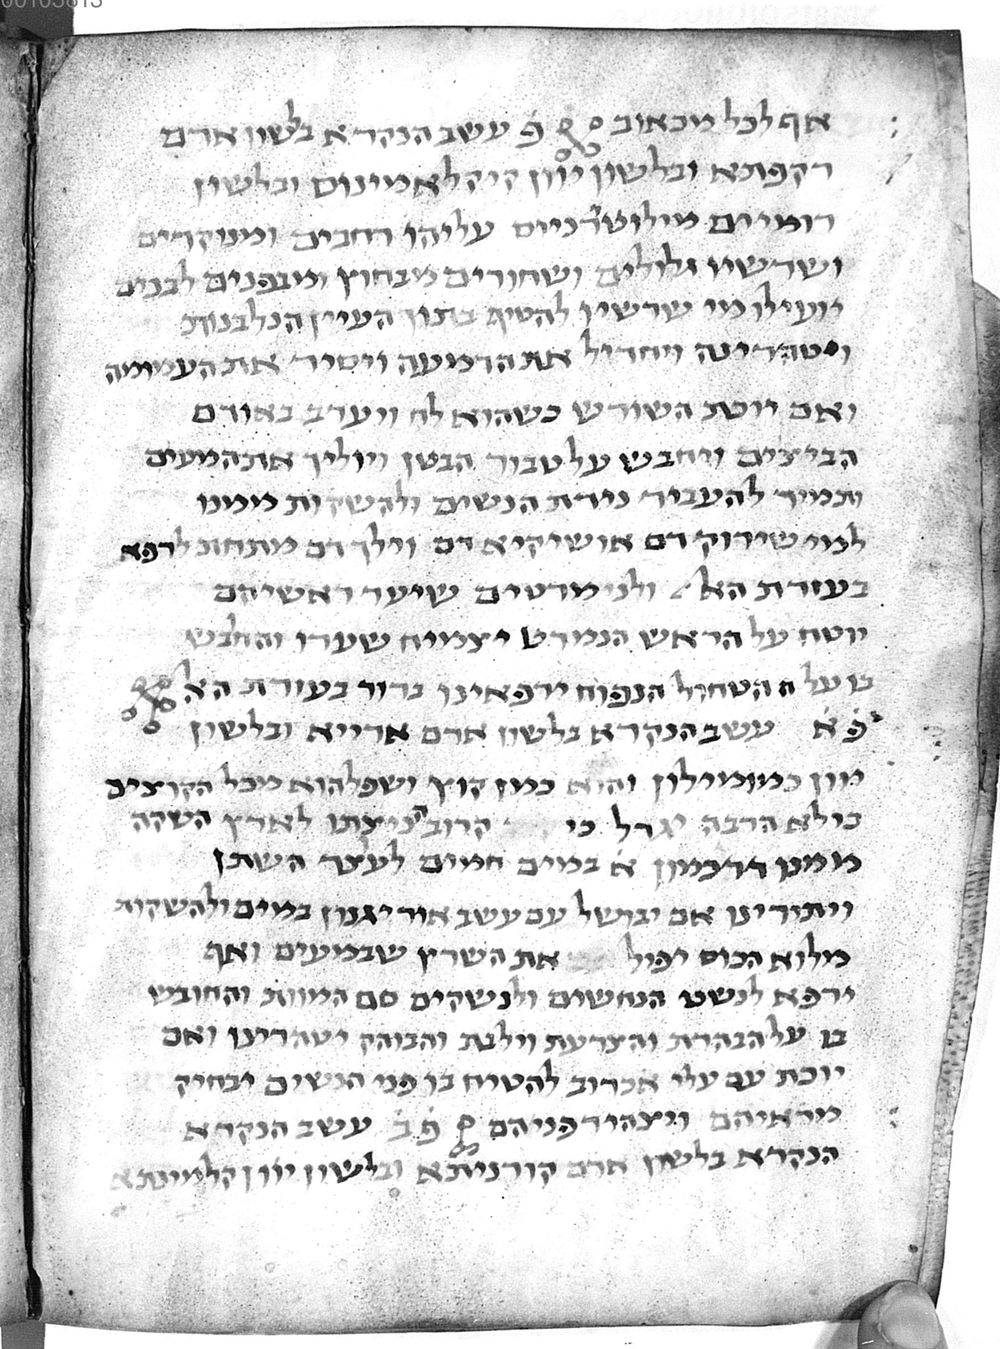 00105813
אף לכל מכאוב פ֗ עשב הנקרא בלשון ארם
רקפתא ובלשון יוון קיקלאמינוס ובלשון
רומיים עליהו רחבים ומנוקדים
ושרשיו גלולים ושחורים מבחוץ ומבפנים לבנים
יועילו מי שרשיו להטיף בתוך העיין הנלבנות
ויטהרינה ויחדיל את הדמעה ויסיר את העמומה
ואם יוכת השורש כשהוא לח ויערב באודם
הביצים ויחבש על טבור הבטן ויוליך את המעים
ותמיד להעביר נידת הנשים ולהשקות ממנו
למי שירוק דם או שיקיא דם וילך דם מתחת לרפא
בעזרת הא֗ל ולנימרטים שיער ראשיהם
יוטח על הראש הנמרט יצמיח שערו והחבש
בו על הטחול הנפוח ירפאינו ברור בעזרת האל
פ֗א֗ עשב הנקרא בלשון ארם ארייא ובלשון
יוון כמומילון והוא כמו קוץ ושפל הוא מכל הקוצים
כי לא הרבה יגדל כי קרוב ניצתו לארץ השקה
ממנו דרכמון א֗ במים חמים לעצר השתן
ויתירינו אם יבושל עם עשב אוריגנון במים ולהשקות
מלוא הכוס יפיל את השרץ שבמעים ואף
ירפא לנשט הנחשים ולנשקים סם המוות והחובש
בו על הבהרת והצרעת וילבת והבוהק יטהרינו ואם
יוכת עם עלי אכרוב להטיח בו פני הנשים יבחיק
מראיהם ויצהיר פניהם פ֗ב֗ עשב הנקרא
הנקרא בלשון ארם קורניתא ובלשון יוון קלמינתא